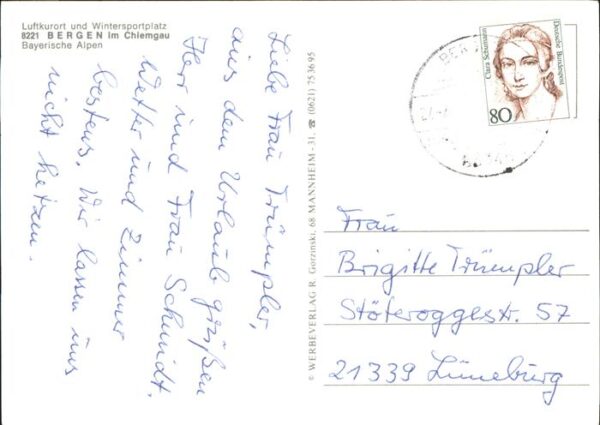 Luftkurort und Wintersportplatz
8221 BERGEN im Chiemgau
Bayerische Alpen
Liebe Frau Trümpler,
aus dem Urlaub grüßen
Herr und Frau Schmidt.
Wetter und Zimmer
bestens. Wir lassen uns
nicht hetzen.
© WERBEVERLAG R. Gorzinski, 68 MANNHEIM-31, ☎ (0621) 753695
Clara Schumann
Deutsche Bundespost
80
BER
Frau
Brigitte Trümpler
Stöteroggestr. 57
21339 Lüneburg